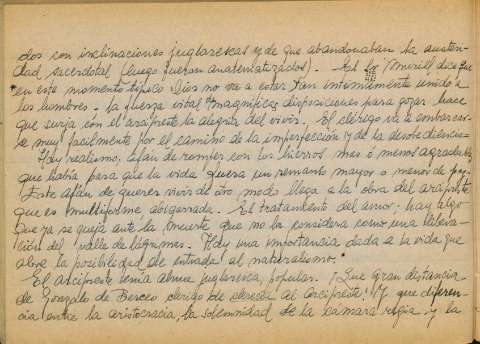 dos con inclinaciones juglarescas y de que abandonaban la austeri-
dad sacerdotal (luego fueron anatematizados). Así lo dice que
en este momento típico Dios no va a estar tan íntimamente unido a
los hombres. La fuerza vital magníficas disposiciones para gozar hace
que surja con el arcipreste la alegría del vivir. El clérigo va a embarcar-
se muy fácilmente por el camino de la imperfección y de la desobediencia.
Hay realismo, afán de romper con los hierros mas ó menos agradables
que había para que la vida fuera un remanso mayor o menor de paz.
Este afán de querer vivir de otro modo llega a la obra del arcipreste
que es multiforme abigarrada. El tratamiento del amor; hay algo
que ya se queja ante la muerte que no la considera como una libera-
ción del valle de lágrimas. Hay una importancia dada a la vida que
abre la posibilidad de entrada al naturalismo.
El Arcipreste tenía alma juglaresca, popular. ¡Que gran distancia
de Gonzalo de Berceo clérigo de al Arcipreste! Y que diferen-
cia entre la aristocracia, la solemnidad de la cámara regia y la